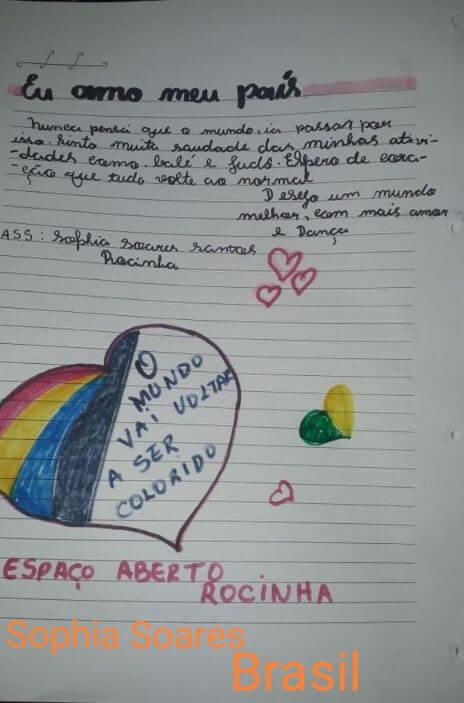 Eu amo meu país
Nunca pensei que o mundo, ia passar por
isso. Sinto muita saudade das minhas ativi-
-dades como. balé e judô. Espero de cora-
-ção que tudo volte ao normal
Desejo um mundo
melhor, com mais amor
e Dança
ASS: Sophia soares santos
Rocinha
O
MUNDO
VAI VOLTAR
A SER
COLORIDO
ESPAÇO ABERTO
ROCINHA
Sophia Soares
Brasil